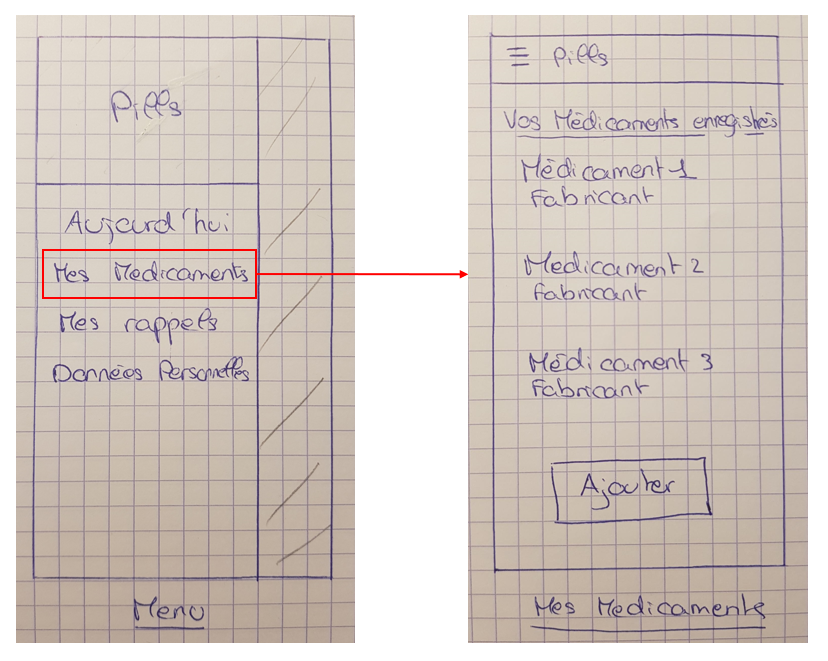 Pills
Aujourd'hui
Mes Médicaments
Mes rappels
Données Personnelles
Menu
Pills
Vos Médicaments enregistrés
Médicament 1
Fabricant
Médicament 2
Fabricant
Médicament 3
Fabricant
Ajouter
Mes Medicaments